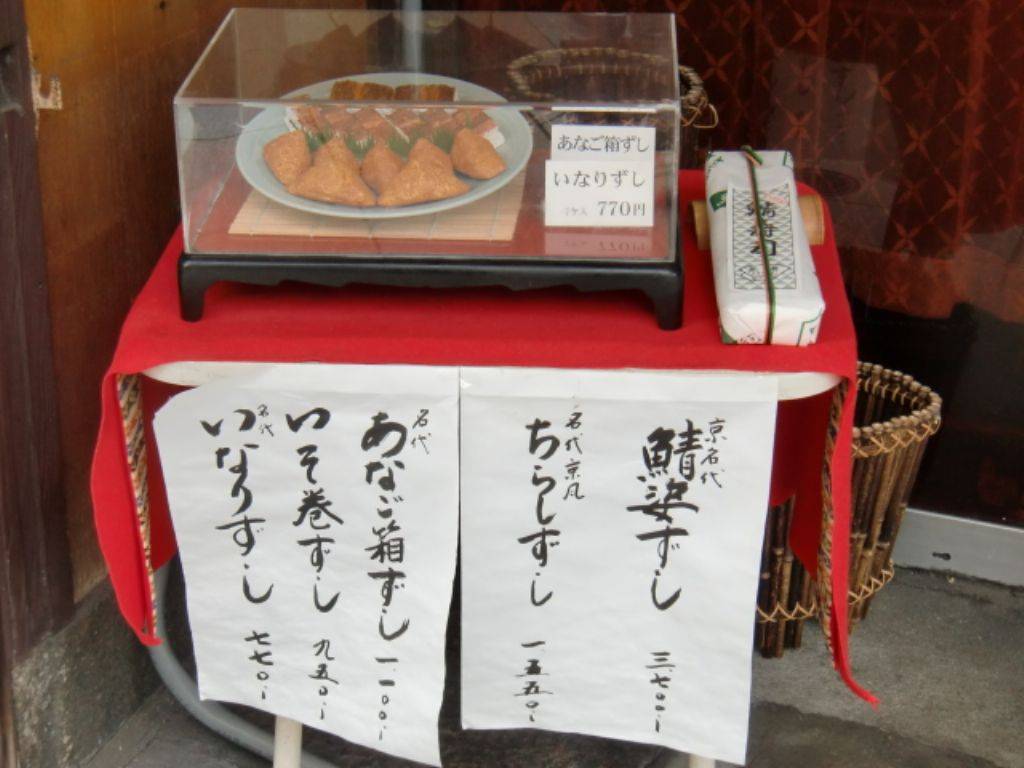 あなご箱ずし
いなりずし
770円
鯖寿司
京名代
鯖姿ずし
三、七〇〇、
名代京風
ちらしずし
一五五〇、
名代
あなご箱ずし
一、一〇〇、
いそ巻ずし
九五〇、
名代
いなりずし
七七〇、